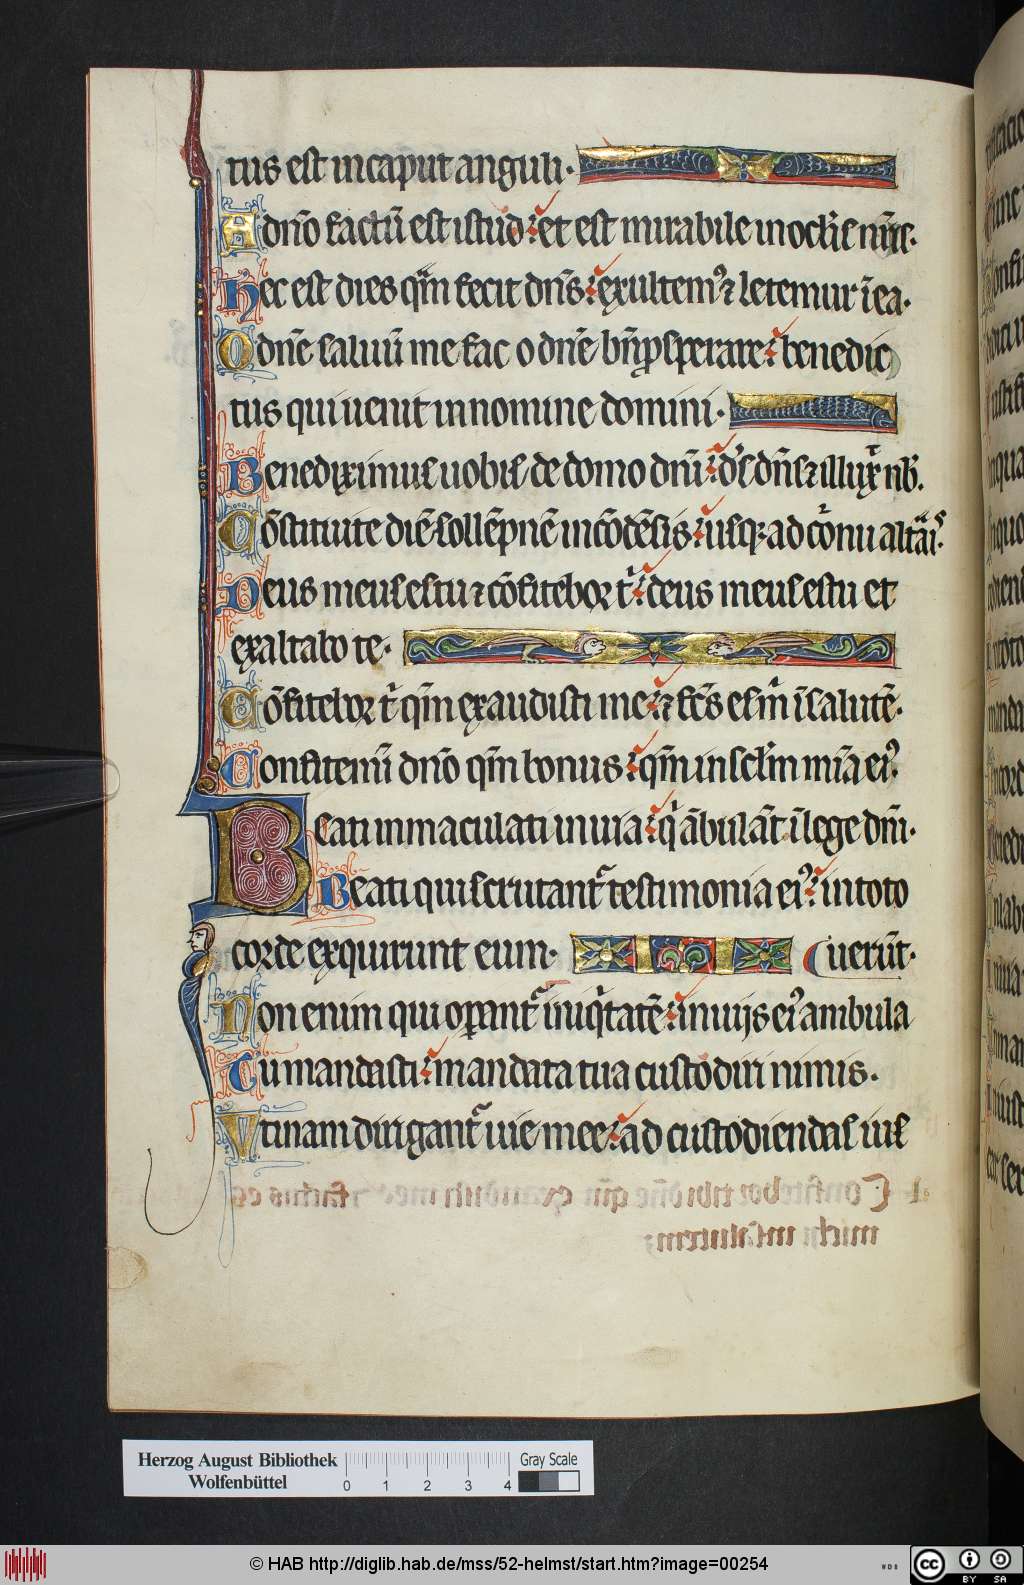 tus est in caput anguli·
A dnō factū est istud: et est mirabile in oclīs nrīs·
Hec est dies qm̄ fecit dns̄: exultemꝰ ⁊ letemur ī ea·
O dnē saluū me fac o dnē bn̄ ꝓsperare: benedic
tus qui uenit in nomine domini·
Benediximus uobis de domo dnī: ds̄ dns̄ ⁊ illux̄ nb̄·
Cōstituite diē sollēpnē in cōdēsis: usqꝫ ad cornu altaīs·
Deus meus es tu ⁊ cōfitebor t̄: deus meus es tu et
exaltabo te·
Cōfitebor t̄ qm̄ exaudisti me: ⁊ fcs̄ es m̄ ī salutē·
Confitemī dnō qm̄ bonus: qm̄ in sclm̄ mīa eiꝰ·
Beati inmaculati in uia: q̄ ābulāt ī lege dnī·
Beati qui scrutant̄ testimonia eiꝰ: in toto
corde exquirunt eum·
uerūt·
Non enim qui oꝑant̄ iniq̄tatē: in uijs eiꝰ ambula
Tu mandasti: mandata tua custodiri nimis·
Utinam dirigant̄ uie mee: ad custodiendas ius
Herzog August Bibliothek
Wolfenbüttel
0 1 2 3 4
Gray Scale
© HAB http://diglib.hab.de/mss/52-helmst/start.htm?image=00254
WDB
cc BY SA